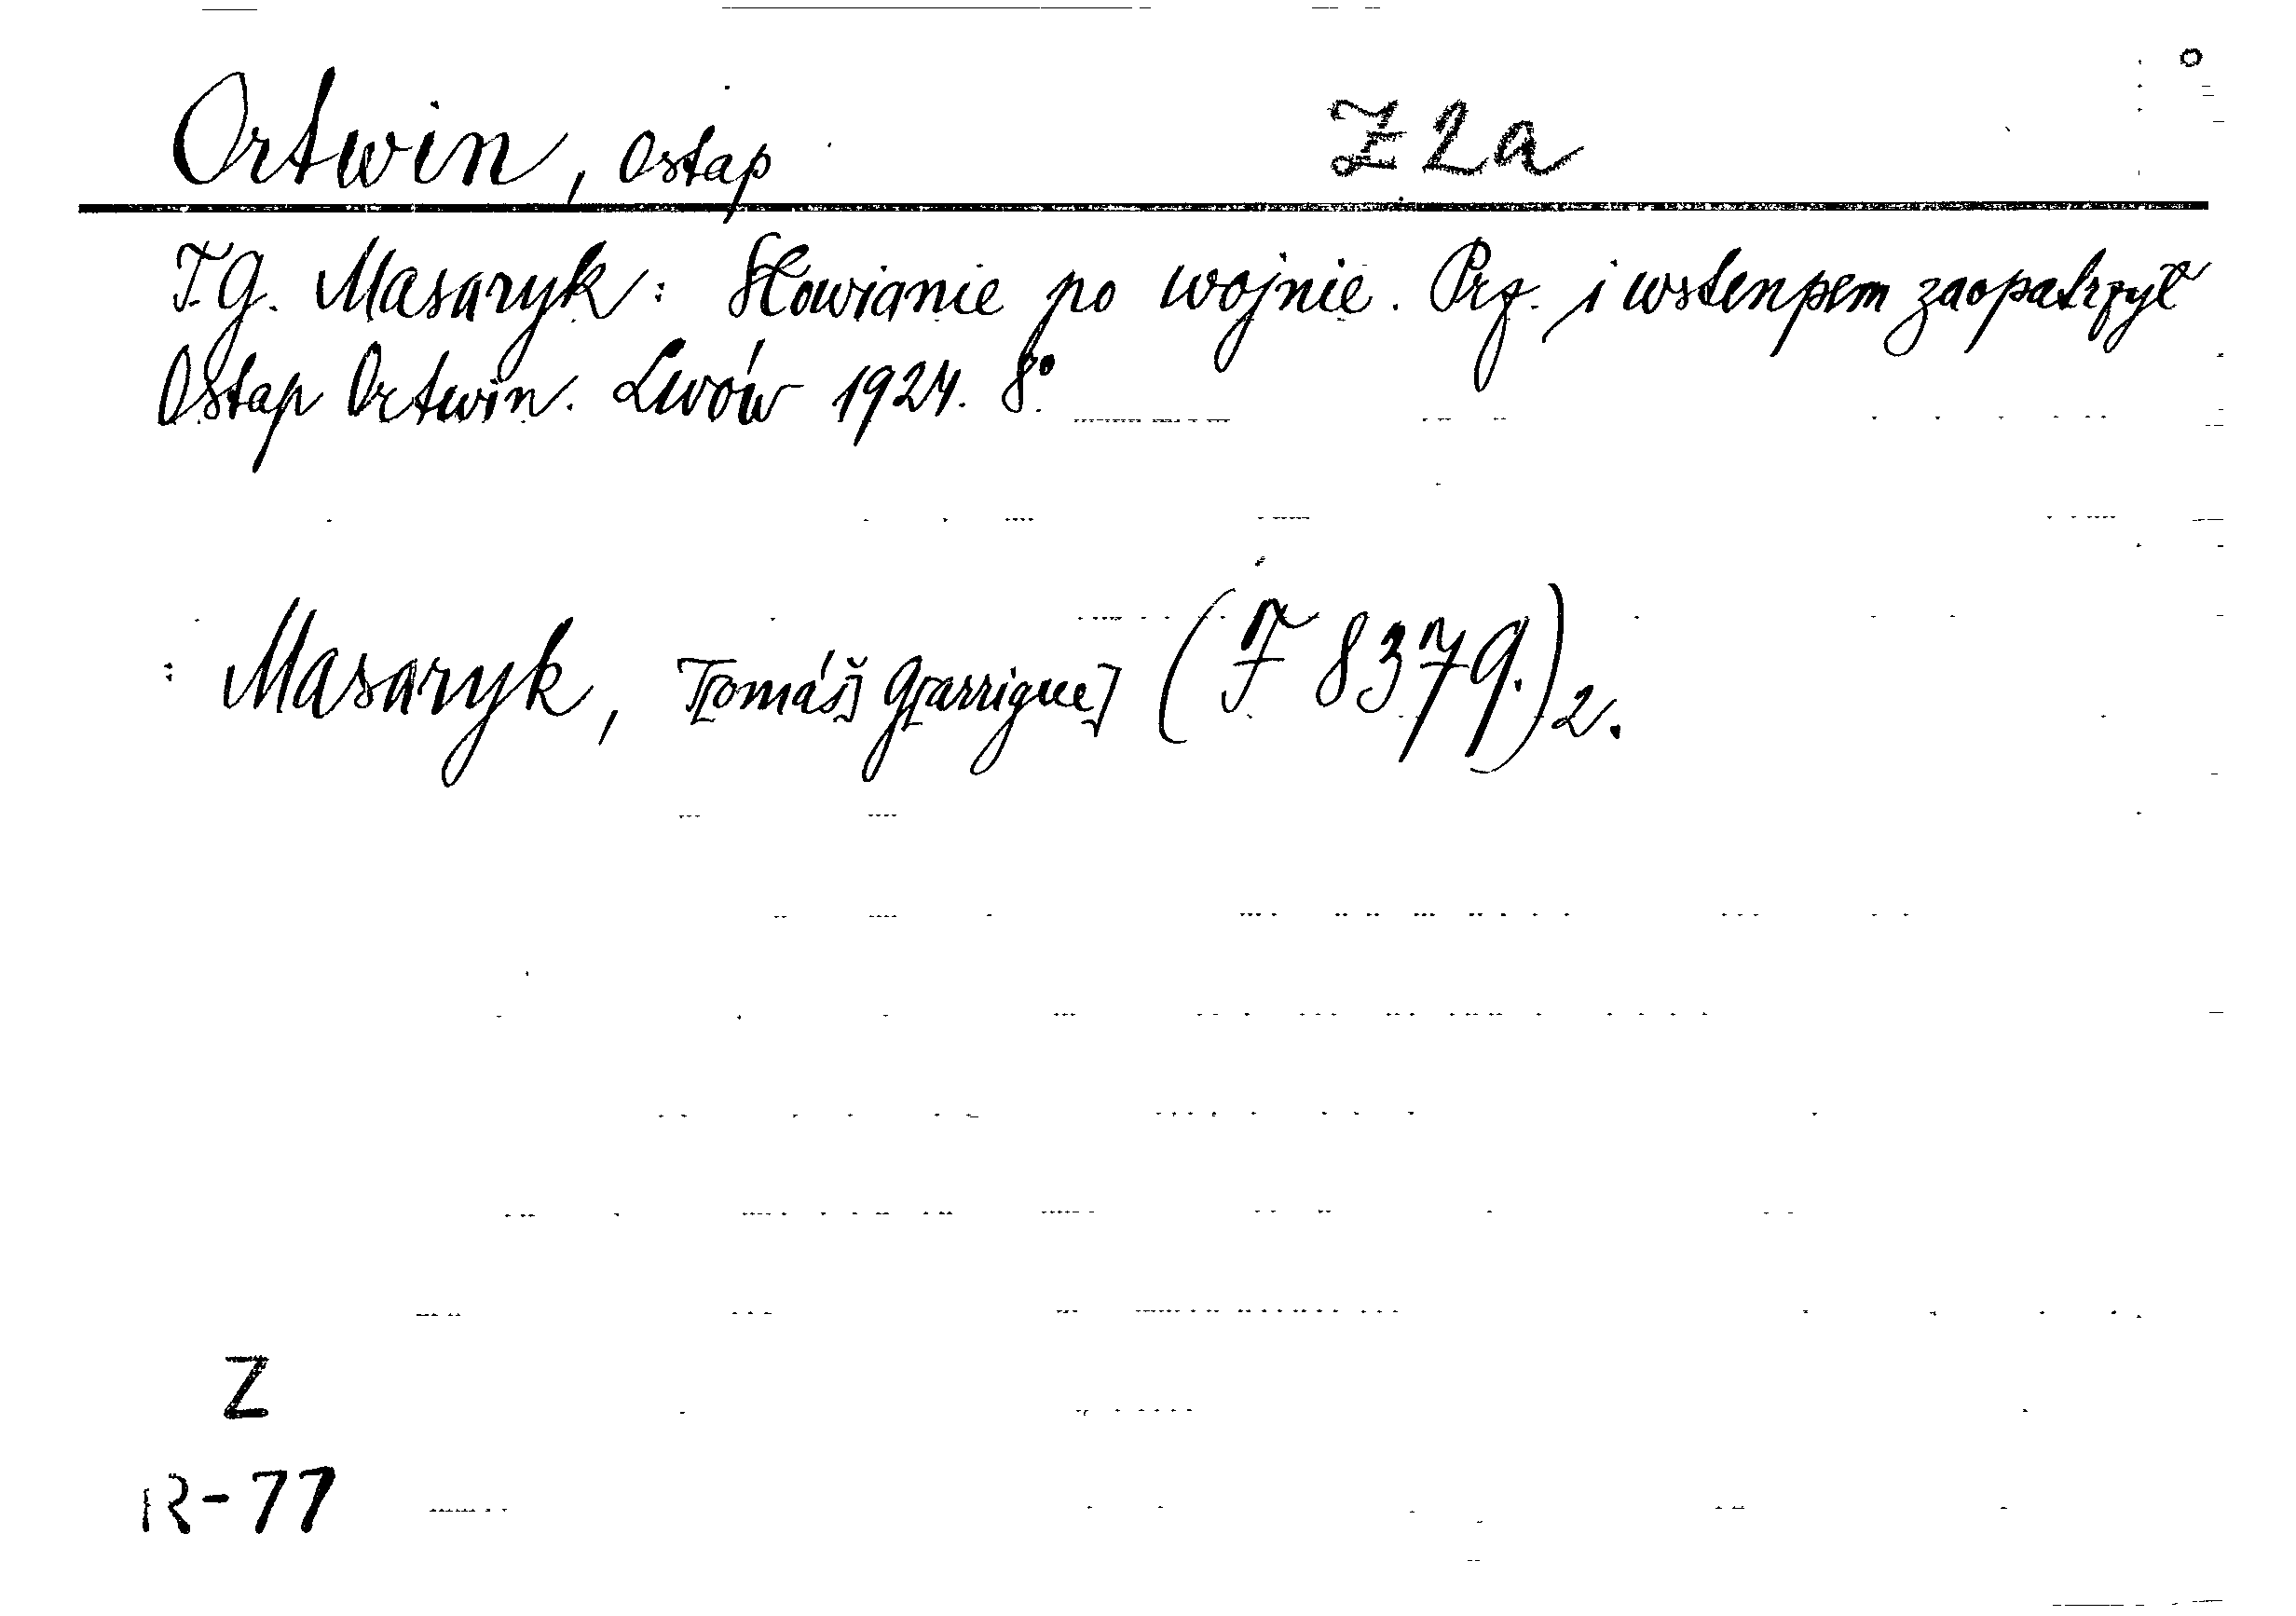 Ortwin, Ostap Z 2a
T.G. Masaryk: Słowianie po wojnie. Prz. i wstenpem zaopatrzył
Ostap Ortwin. Lwów 1924. 8°
: Masaryk, T[omáš] G[arrigue] (F 8379.) 2.
Z
R-77